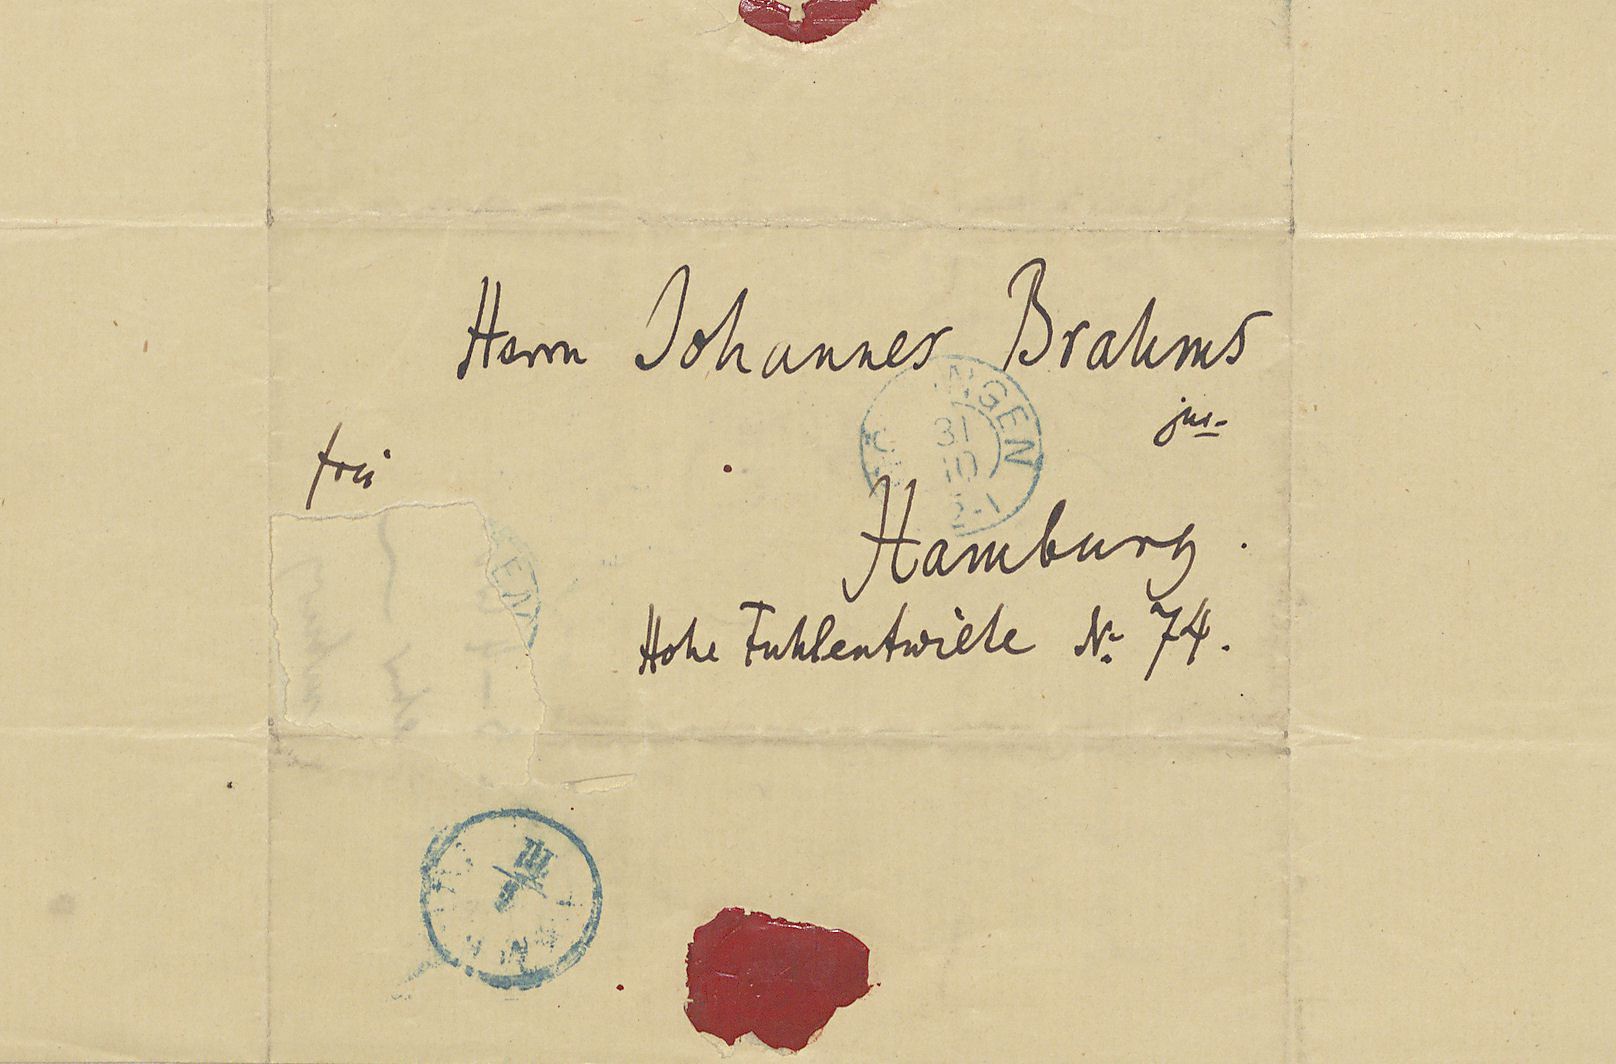 Herrn Johannes Brahms
jun.
frei
NGEN
31
10
2-1
Hamburg.
Hohe Fuhlentwiete No 74.
EN